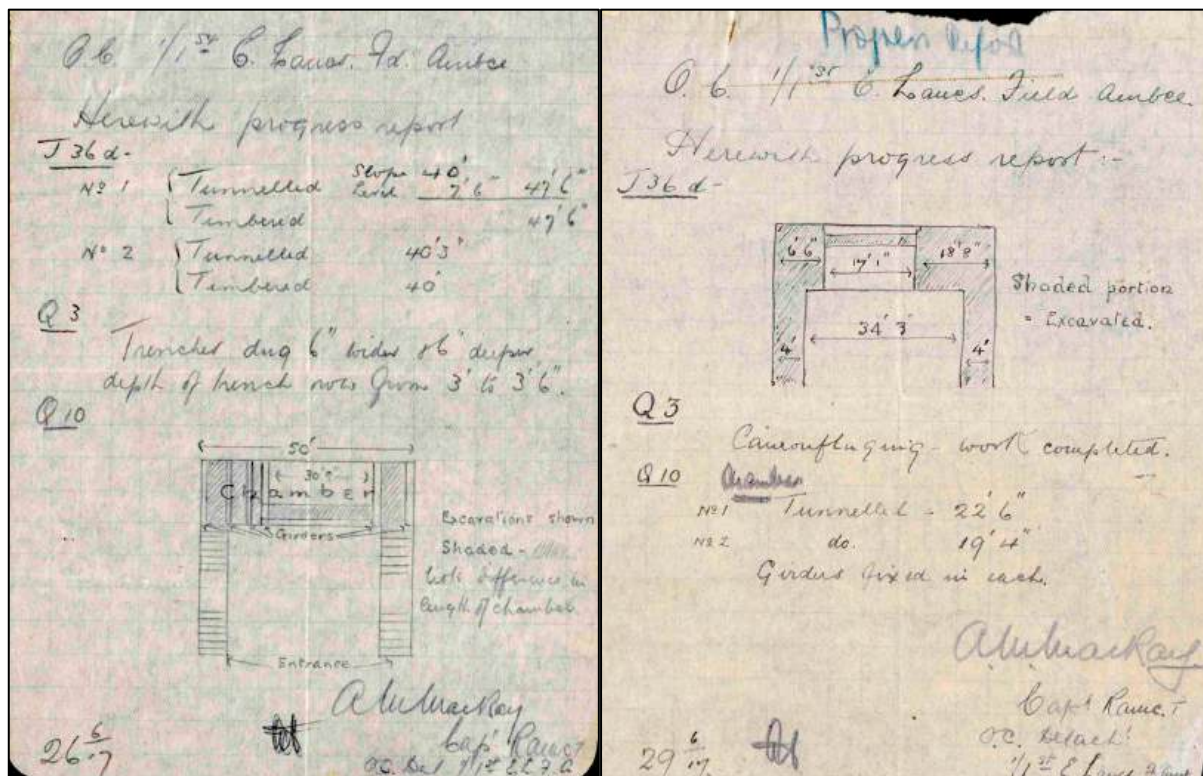 O.C. 1/1st E. Lancs. Fd. Ambce
Herewith progress report
J 36 d -
No 1 { Tunnelled Slope 40'
Level 7' 6" 47' 6"
{ Timbered 47' 6"
No 2 { Tunnelled 40' 3"
{ Timbered 40'
Q 3
Trenches dug 6" wider & 6" deeper
depth of trench now from 3' to 3' 6".
Q 10
50'
30'
Chamber
Girders
Excavations shown
Shaded -
difference in
length of chamber
Entrance
A M MacKay
Capt RAMC T
O.C. Det 1/1st
26 6/17
Progress Report
O.C. 1/1st E. Lancs. Field Ambce.
Herewith progress report :-
J 36 d -
6' 6" 17' 1" 18' 8"
34' 3"
4' 4'
Shaded portion
= Excavated.
Q 3
Camouflaging - work completed.
Q 10 Chamber
No 1 Tunnelled - 22' 6"
No 2 do. 19' 4"
Girders fixed in each.
A M MacKay
Capt RAMC. T
O.C. Detacht
1/1st E. Lancs
29 6/17